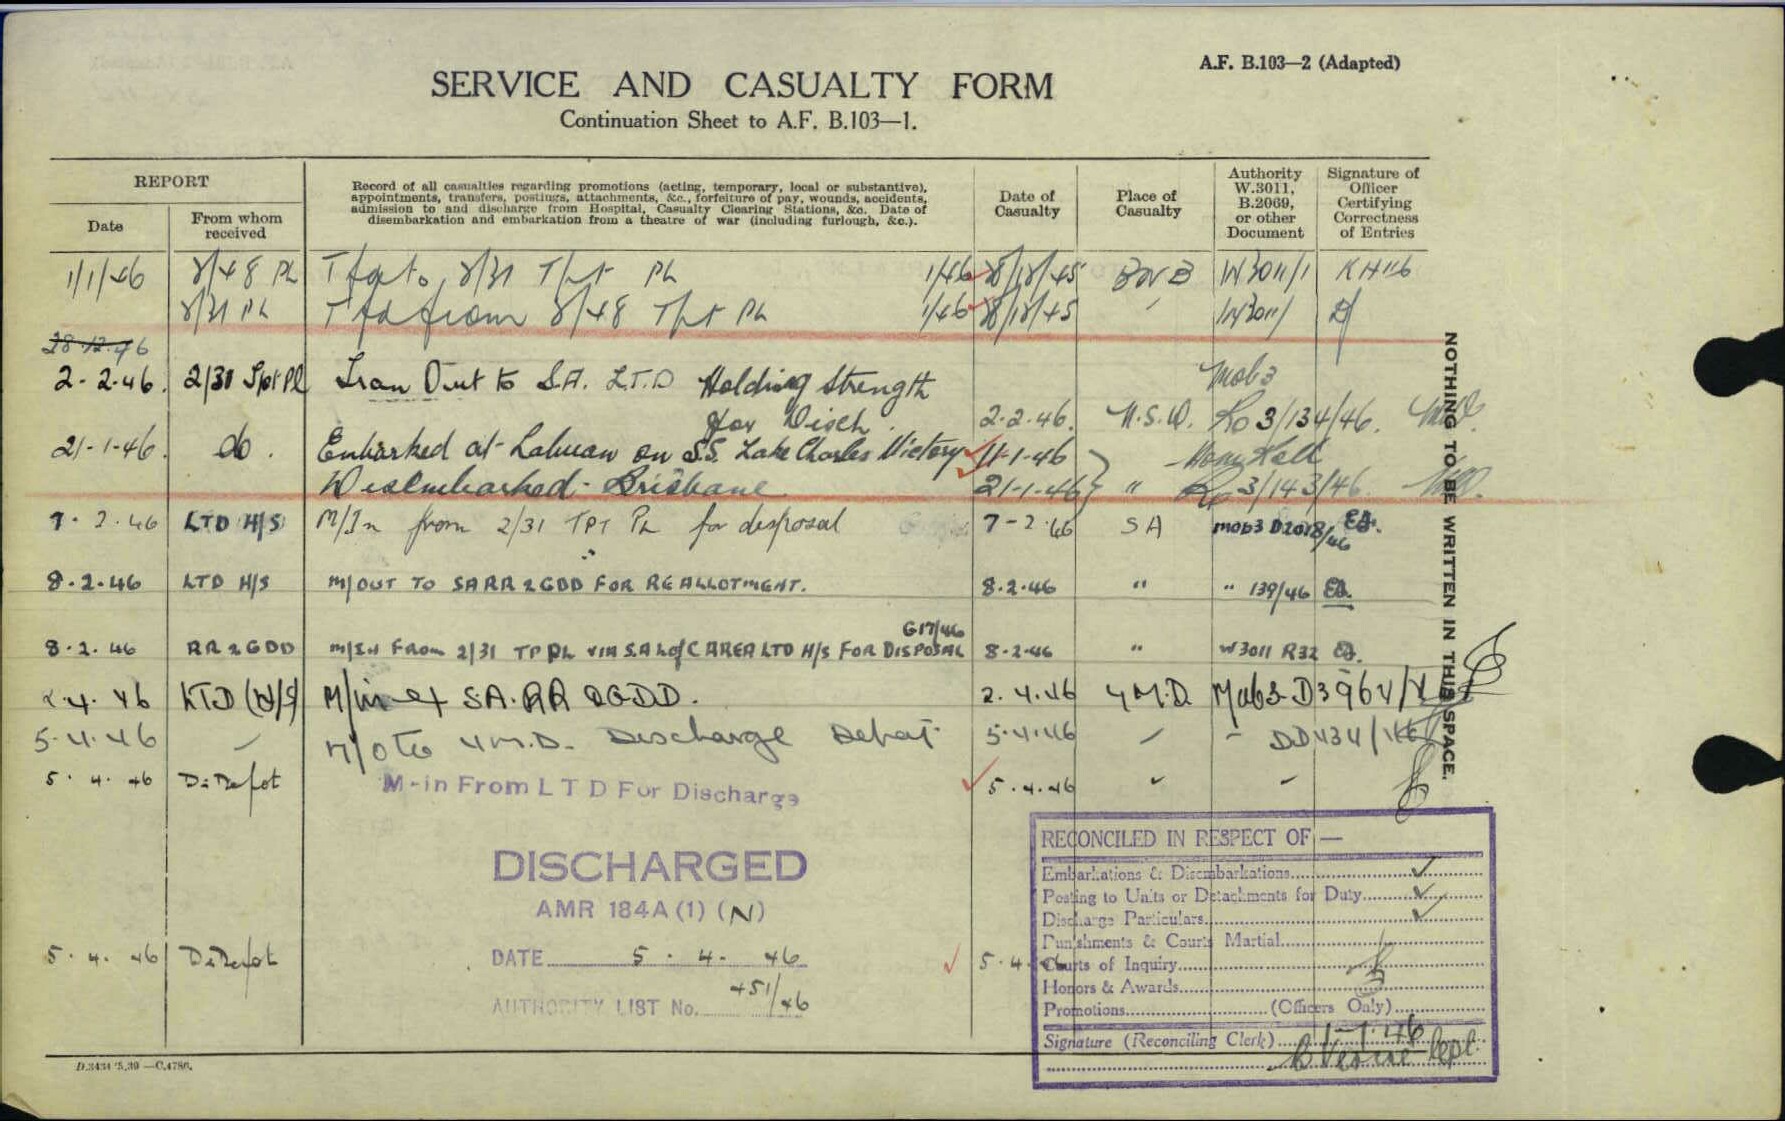 A.F. B.103—2 (Adapted)
SERVICE AND CASUALTY FORM
Continuation Sheet to A.F. B.103—1.
REPORT
Date
From whom received
Record of all casualties regarding promotions (acting, temporary, local or substantive),
appointments, transfers, postings, attachments, &c., forfeiture of pay, wounds, accidents,
admission to and discharge from Hospital, Casualty Clearing Stations, &c. Date of
disembarkation and embarkation from a theatre of war (including furlough, &c.).
Date of Casualty
Place of Casualty
Authority W.3011, B.2069, or other Document
Signature of Officer Certifying Correctness of Entries
1/1/46 2/48 PL 2/31 Tpt PL 1/46 8/12/45 W3011/1
2/31 PL from 2/48 Tpt PL 1/46 8/12/45 W3011/
28.12.46
2-2-46. 2/31 Tpt PL Tran Out to S.A. L.T.D Holding Strength
for Disch. 2-2-46. N.S.W. Mob3 Ro 3/134/46.
21-1-46. do. Embarked at Labuan on S.S. Lake Charles Victory 11-1-46
Disembarked - Brisbane 21-1-46 " Ro 3/143/46
7-2-46 LTD H/S M/In from 2/31 TPT PL for disposal 7-2-46 SA Mob3 D2018/46
8.2.46 LTD H/S M/OUT TO SARR & GDD FOR REALLOTMENT. 8.2.46 " " 139/46
G17/46
8.2.46 RR & GDD M/IN FROM 2/31 TP PL VIA S.A. L of C AREA LTD H/S FOR DISPOSAL 8-2-46 " W3011 R32
2.4.46 LTD (H/S) M/in ex S.A. RR & GDD. 2.4.46 4 M.D
5.4.46 M/O to 4 M.D. Discharge Depot 5.4.46
5.4.46 D. Depot M-in From L T D For Discharge 5.4.46
DISCHARGED
AMR 184A (1) (N)
5.4.46 D. Depot DATE 5.4.46 5.4.46
AUTHORITY LIST No. 451/46
RECONCILED IN RESPECT OF —
Embarkations & Disembarkations
Posting to Units or Detachments for Duty
Discharge Particulars
Punishments & Courts Martial
Courts of Inquiry
Honors & Awards
Promotions (Officers Only)
Signature (Reconciling Clerk)
NOTHING TO BE WRITTEN IN THIS SPACE.
D.3434/5.39 —C.4786.